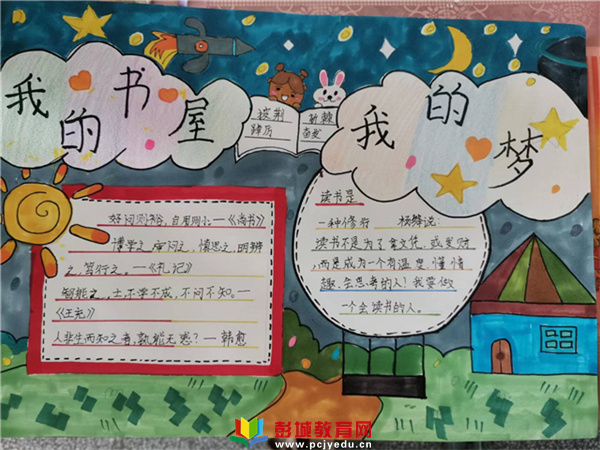 我的书屋
我的梦
披荆 斩棘
踔厉 奋发
好问则裕,自用则小。—《尚书》
博学之,审问之,慎思之,明辨
之,笃行之。—《礼记》
智能之,士,不学不成,不问不知。—
《王充》
人非生而知之者,孰能无惑?—韩愈
读书是
一种修行 杨绛说:
读书不是为了拿文凭,或发财
,而是成为一个有温度,懂情
趣,会思考的人!我要做
一个会读书的人。
彭城教育网
www.pcjyedu.cn